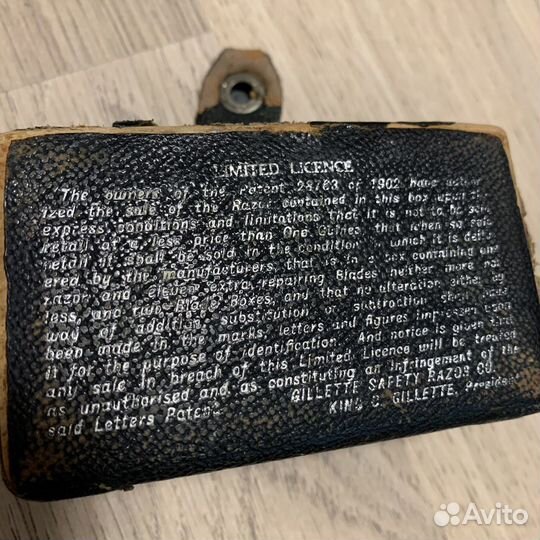 LIMITED LICENCE
The owners of the Patent 28763 of 1902 have author
ized the sale of the Razor contained in this box upon
express conditions and limitations that it is not to be so
retail at a less price than One Guinea, that when so sol
retail it shall be sold in the condition in which it is deli
ered by the manufacturers, that is in a box containing one
razor and eleven extra repairing Blades neither more nor
less, and two Blade Boxes, and that no alteration either by
way of addition, substitution or subtraction shall have
been made in the marks, letters and figures impressed upon
it for the purpose of identification. And notice is given that
any sale in breach of this Limited Licence will be treated
as unauthorised and as constituting an infringement of the
said Letters Patent.
GILLETTE SAFETY RAZOR CO.
KING C. GILLETTE, President
Avito